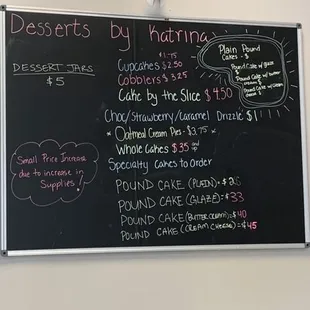 Desserts by Katrina
DESSERT JARS
$5
$1.75
Cupcakes $2.50
Cobblers $3.25
Cake by the Slice $4.50
Choc/Strawberry/Caramel Drizzle $1
* Oatmeal Cream Pies - $3.75 *
Whole Cakes $35 and
Specialty Cakes to Order
POUND CAKE (PLAIN) - $
POUND CAKE (GLAZE) = $33
POUND CAKE (BUTTER CREAM) = $40
POUND CAKE (CREAM CHEESE) = $45
Plain Pound
Cakes - $
Pound Cake w/ glaze
$
Pound Cake w/ butter
cream $
Pound Cake w/ cream
cheese $
Small Price Increase
due to increase in
Supplies!